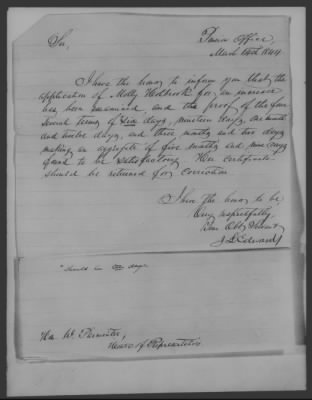 Pension Office,
March 14th 1844
Sir,
I have the honor to inform you that the
application of Molly Holbrook for an increase
has been examined and the proof of the four
several terms of Six days, nineteen days, one month
and twelve days, and three months and two days
making an aggregate of five months and nine days
found to be satisfactory. Her certificate
should be returned for correction
I have the honor to be
Very respectfully
Your Obt Servant
J L Edwards
"Should be days
Hon. W.
House of Representatives